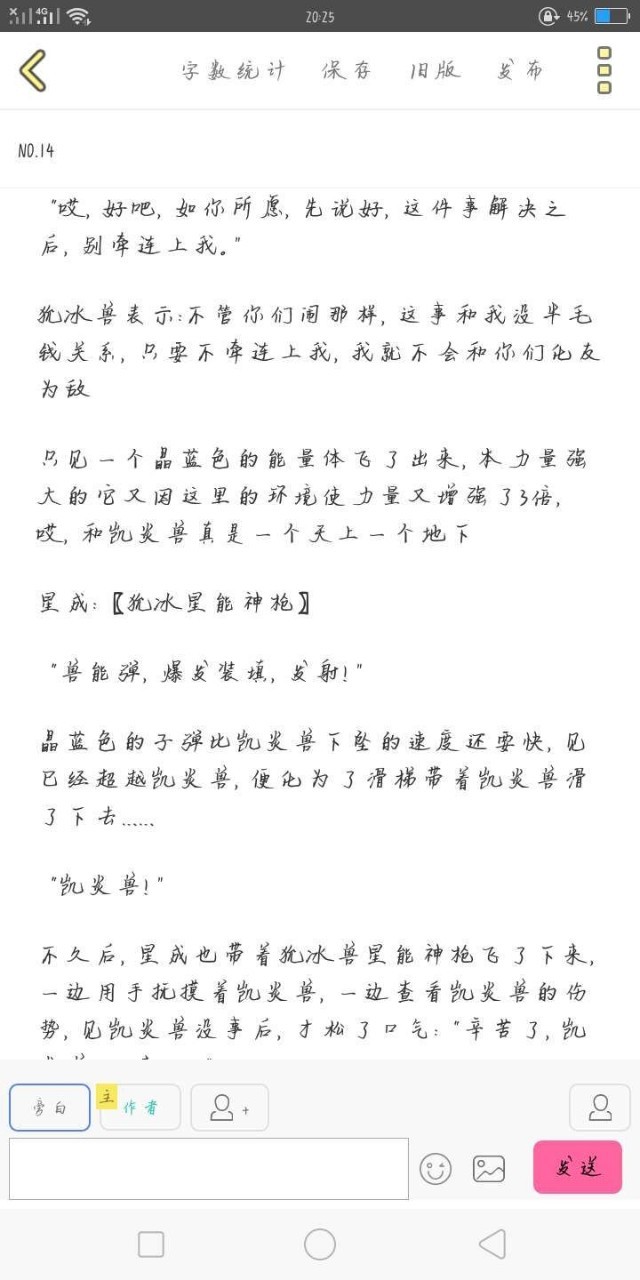 4G 20:25 45%
字数统计 保存 旧版 发布
NO.14
"哎,好吧,如你所愿,先说好,这件事解决之
后,别牵连上我。"
犹冰兽表示:不管你们闹那样,这事和我没半毛
钱关系,只要不牵连上我,我就不会和你们化友
为敌
只见一个晶蓝色的能量体飞了出来,本力量强
大的它又因这里的环境使力量又增强了3倍,
哎,和凯炎兽真是一个天上一个地下
星成:〖犹冰星能神枪〗
"兽能弹,爆发装填,发射!"
晶蓝色的子弹比凯炎兽下坠的速度还要快,见
已经超越凯炎兽,便化为了滑梯带着凯炎兽滑
了下去……
"凯炎兽!"
不久后,星成也带着犹冰兽星能神枪飞了下来,
一边用手抚摸着凯炎兽,一边查看凯炎兽的伤
势,见凯炎兽没事后,才松了口气:"辛苦了,凯
旁白 主 作者 +
发送